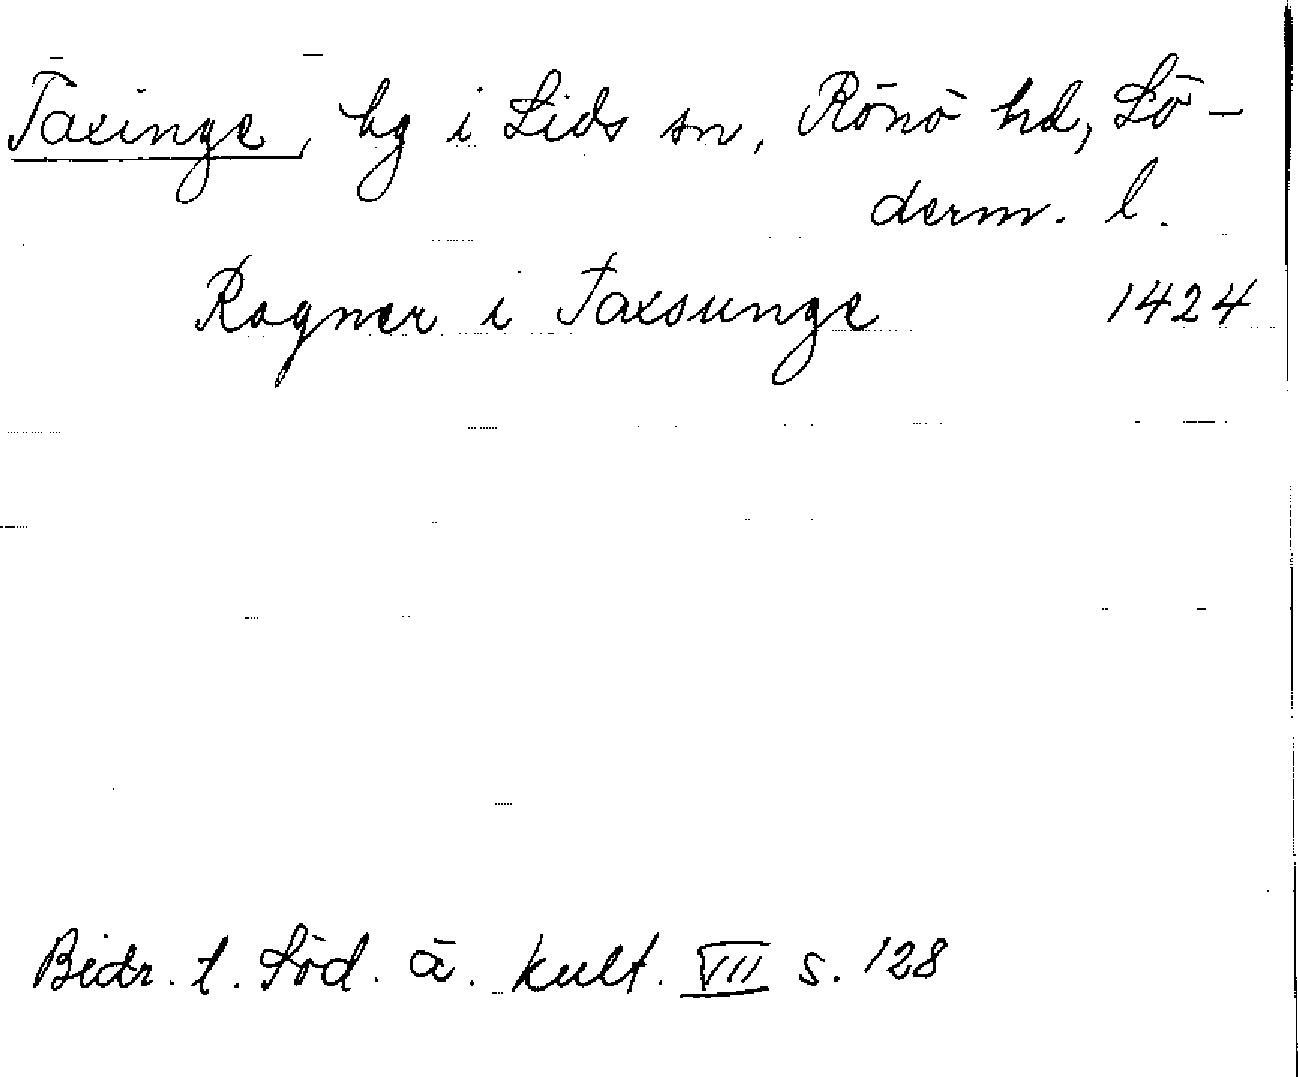 Taxinge, by i Lids sn, Rönö hd, Sö-
derm. l.
Ragner i Taxsunge 1424
Bidr. t. Söd. ä. kult. VII s. 128